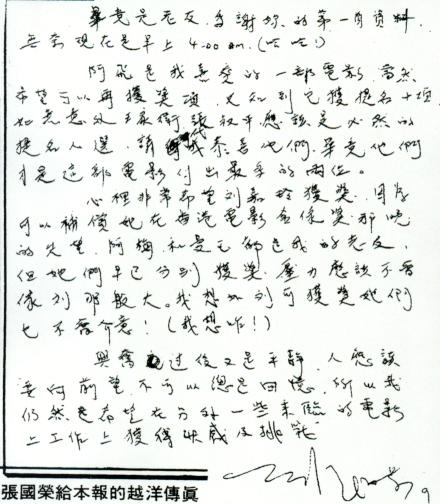 畢竟是老友,多謝妳的第一有資料,
無奈現在是早上4:00am.(哈哈!)
阿飛是我喜愛的一部電影,當然
希望可以再獲獎項,又知到它獲提名十項
如無意外球衛張叔平應該是必然的
提名人選,請代我恭喜他們,畢竟他們
是這部電影付出最多的兩位。
心裡非常希望到劉嘉玲獲獎,因為
可以補償她在香港電影金像獎那晚
的失望,阿梅和曼玉都是我的老友,
但她們早已分別獲獎,壓力應該不會
像列那般大。我想如列可獲獎她們
也不會介意!(我想咋!)
興奮過後又是平靜,人應該
要向前望,不可以總是回憶,所以我
仍然是希望在另外一些來臨的電影
上工作上獲得快感及挑戰
張國榮給本報的越洋傳真